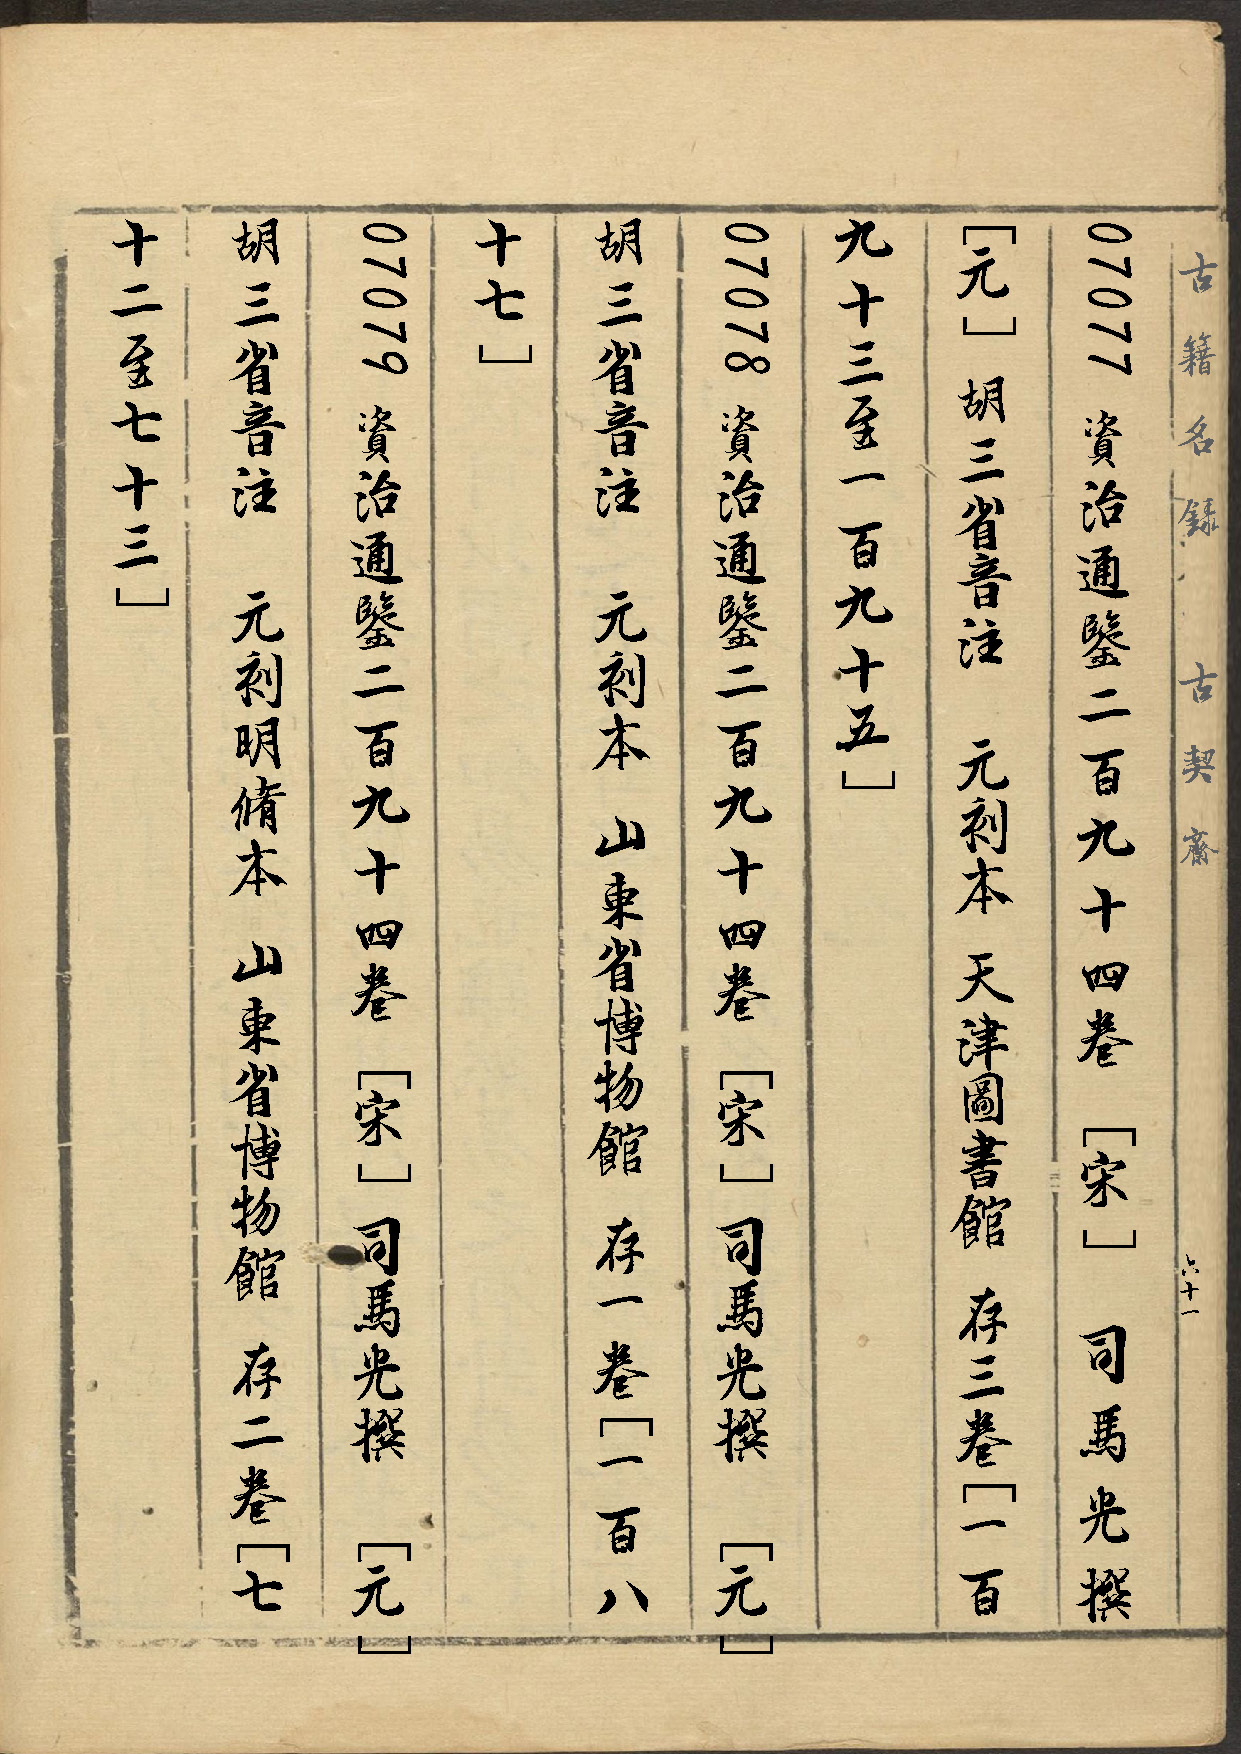 古籍名録 古契齋
六十一
07077 資治通鑒二百九十四卷 [宋] 司馬光撰
[元] 胡三省音注 元刻本 天津圖書館 存三卷[一百
九十三至一百九十五]
07078 資治通鑒二百九十四卷 [宋] 司馬光撰 [元]
胡三省音注 元刻本 山東省博物館 存一卷[一百八
十七]
07079 資治通鑒二百九十四卷 [宋] 司馬光撰 [元]
胡三省音注 元刻明脩本 山東省博物館 存二卷[七
十二至七十三]